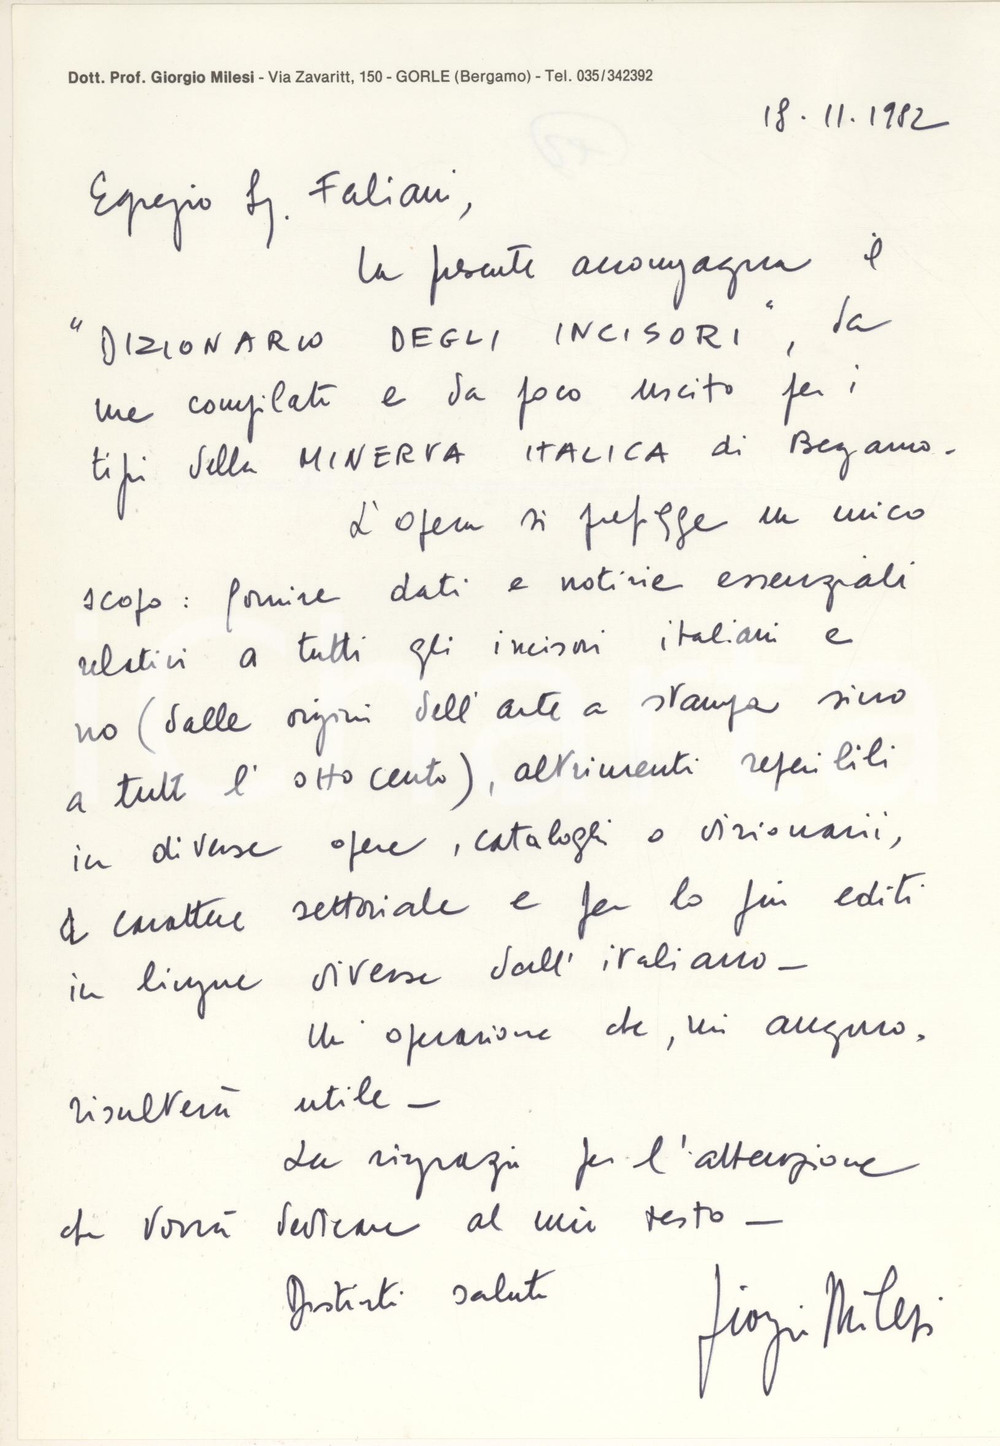 Dott. Prof. Giorgio Milesi - Via Zavaritt, 150 - GORLE (Bergamo) - Tel. 035/342392
18.11.1982
Egregio Sg. Faliani,
la presente accompagna il
"DIZIONARIO DEGLI INCISORI", da
me compilato e da poco uscito per i
tipi della MINERVA ITALICA di Bergamo.
L'opera si prefigge un unico
scopo: fornire dati e notizie essenziali
relativi a tutti gli incisori italiani e
no (dalle origini dell'arte a stampa sino
a tutto l'ottocento), altrimenti reperibili
in diverse opere, cataloghi o dizionari,
a carattere settoriale e per lo più editi
in lingue diverse dall'italiano -
Un'operazione che, mi auguro,
risulterà utile -
La ringrazio per l'attenzione
che vorrà dedicare al mio testo -
Distinti saluti
Giorgio Milesi